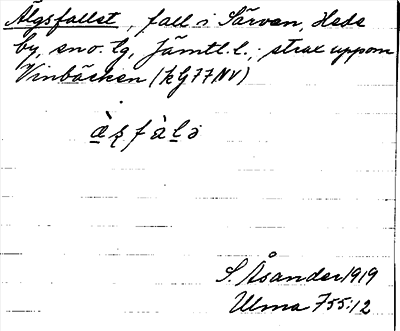 Älgsfallet, fall i Särvan, Hede
by, sno. tg, Jämtl. l.; strax uppom
Vinbäcken (kG77NV)
ὰșfàlə
S. Åsander 1919
Ulma 755:12